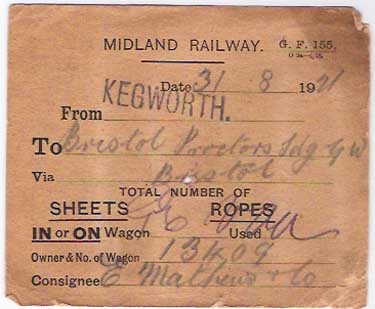 MIDLAND RAILWAY. G. F. 155.
Date 31 8 1921
From KEGWORTH.
To Bristol Proctors Sdg G W
Via Bristol
TOTAL NUMBER OF
SHEETS ROPES
IN or ON Wagon Used
Owner & No. of Wagon 13409
Consignee E Mathews & Co